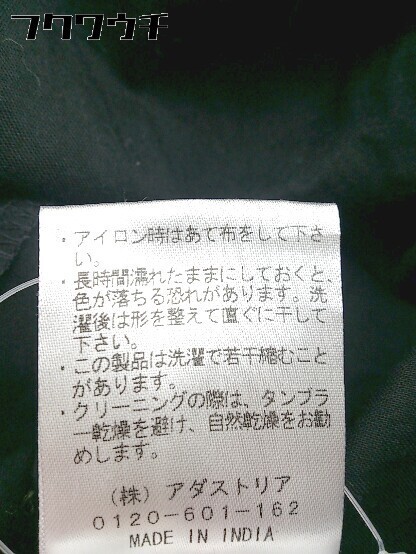 フクワウチ
・アイロン時はあて布をして下さ
い。
・長時間濡れたままにしておくと、
色が落ちる恐れがあります。洗
濯後は形を整えて直ぐに干して
下さい。
・この製品は洗濯で若干縮むこと
があります。
・クリーニングの際は、タンブラ
ー乾燥を避け、自然乾燥をお勧
めします。
(株) アダストリア
0120-601-162
MADE IN INDIA